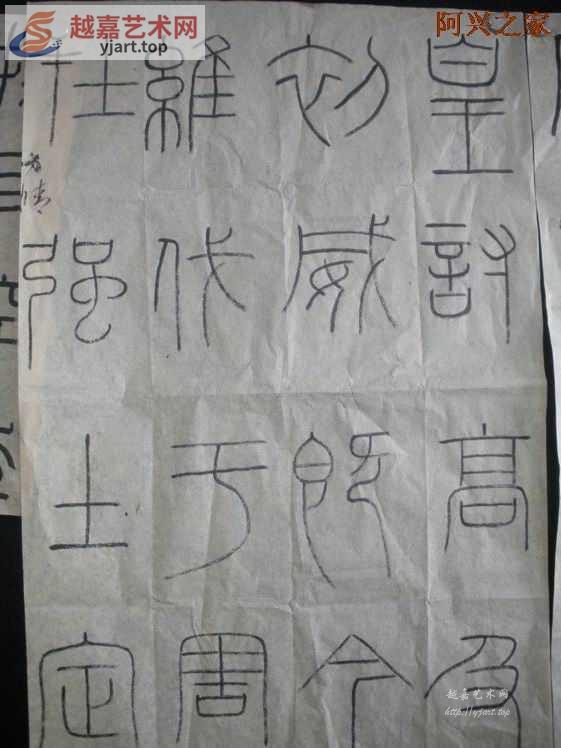 越嘉艺术网
yjart.top
阿兴之家
皇討高及
初威既今
維伐于周
强土定
越嘉艺术网
http://yjart.top